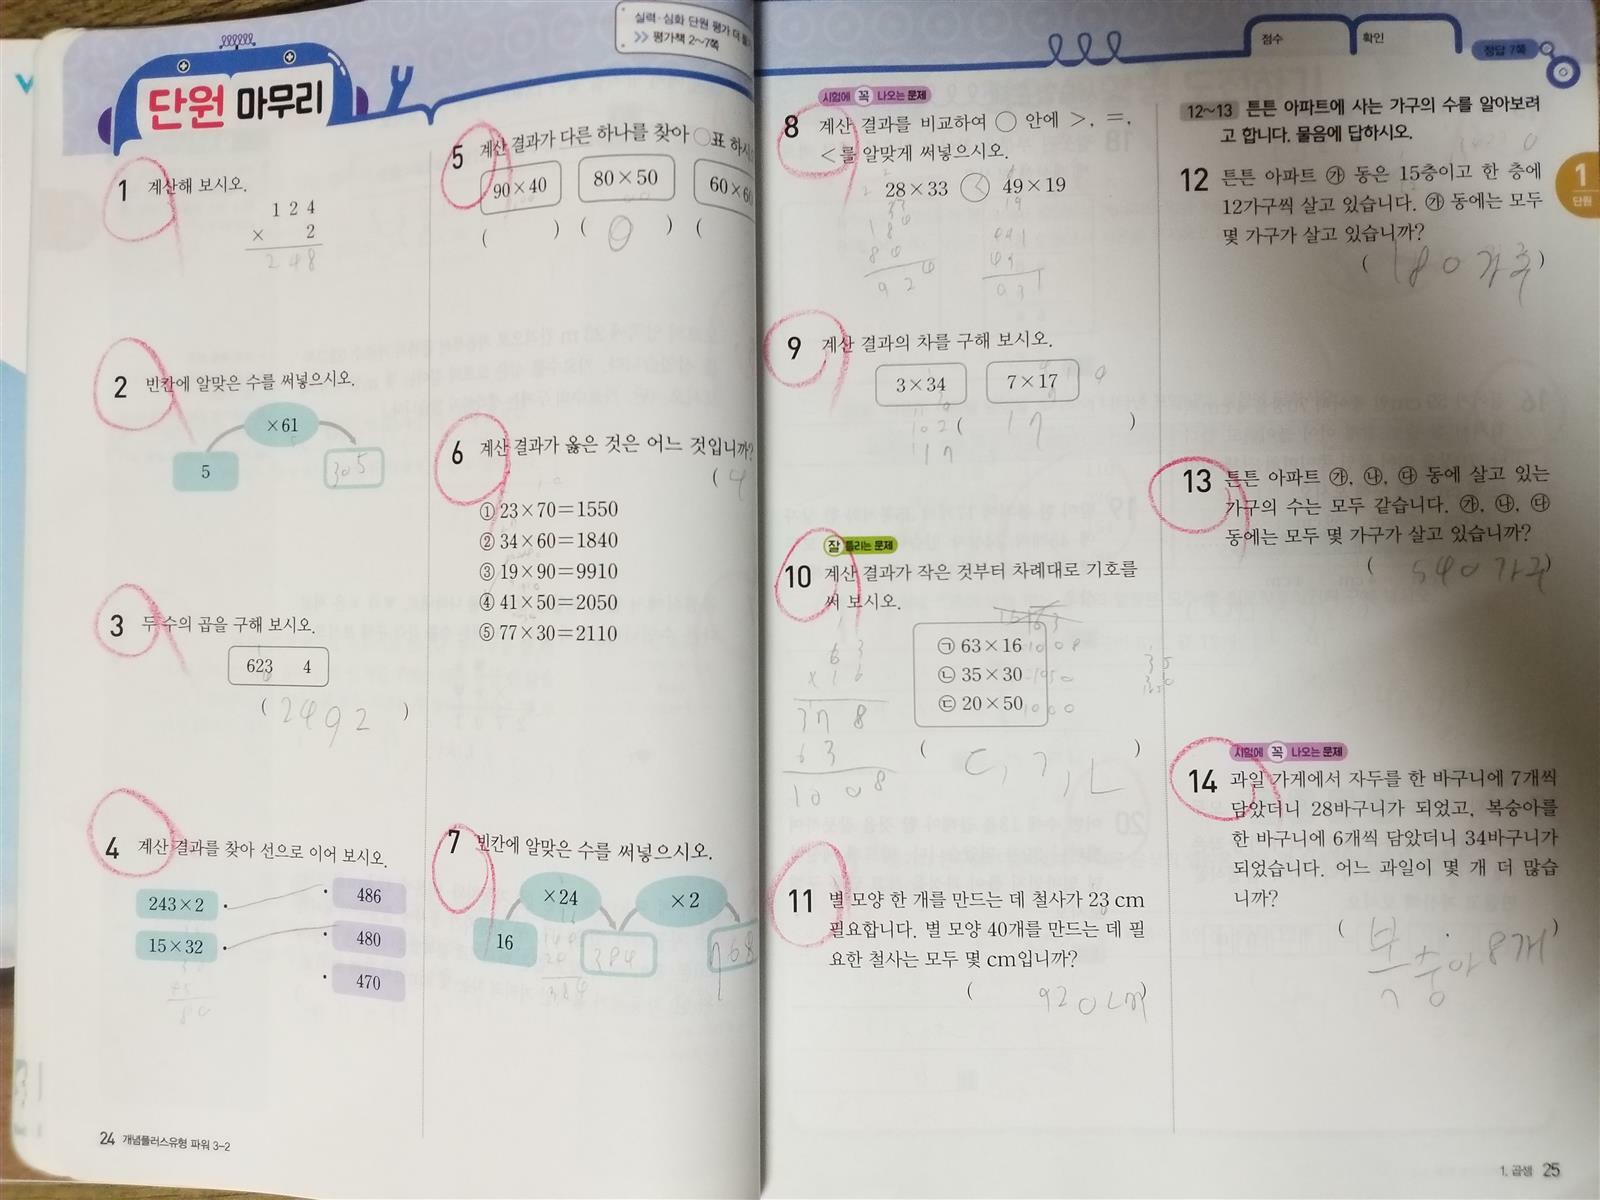 실력·심화 단원 평가 더 풀
>> 평가책 2~7쪽
단원 마무리
1 계산해 보시오.
1 2 4
× 2
2 4 8
2 빈칸에 알맞은 수를 써넣으시오.
×61
5 305
3 두 수의 곱을 구해 보시오.
623 4
( 2492 )
4 계산 결과를 찾아 선으로 이어 보시오.
243×2 · · 486
15×32 · · 480
· 470
24 개념플러스유형 파워 3-2
5 계산 결과가 다른 하나를 찾아 ○표 하시
90×40 80×50 60×60
( ) ( O ) (
6 계산 결과가 옳은 것은 어느 것입니까?
( 4
① 23×70=1550
② 34×60=1840
③ 19×90=9910
④ 41×50=2050
⑤ 77×30=2110
7 빈칸에 알맞은 수를 써넣으시오.
×24 ×2
16 384 768
384
점수 확인 정답 7쪽
시험에 꼭 나오는 문제
8 계산 결과를 비교하여 ○ 안에 >, =,
<를 알맞게 써넣으시오.
28×33 < 49×19
8 4
9 2 4
9 계산 결과의 차를 구해 보시오.
3×34 7×17
102 ( 17 )
17
잘 틀리는 문제
10 계산 결과가 작은 것부터 차례대로 기호를
써 보시오.
㉠ 63×16 1008
㉡ 35×30 1050
㉢ 20×50 1000
6 3
×1 6
3 7 8
6 3
1 0 0 8
( ㄷ, ㄱ, ㄴ )
11 별 모양 한 개를 만드는 데 철사가 23 cm
필요합니다. 별 모양 40개를 만드는 데 필
요한 철사는 모두 몇 cm입니까?
( 920cm )
12~13 튼튼 아파트에 사는 가구의 수를 알아보려
고 합니다. 물음에 답하시오.
1 단원
12 튼튼 아파트 ㉮ 동은 15층이고 한 층에
12가구씩 살고 있습니다. ㉮ 동에는 모두
몇 가구가 살고 있습니까?
( 180가구 )
13 튼튼 아파트 ㉮, ㉯, ㉰ 동에 살고 있는
가구의 수는 모두 같습니다. ㉮, ㉯, ㉰
동에는 모두 몇 가구가 살고 있습니까?
( 540가구 )
시험에 꼭 나오는 문제
14 과일 가게에서 자두를 한 바구니에 7개씩
담았더니 28바구니가 되었고, 복숭아를
한 바구니에 6개씩 담았더니 34바구니가
되었습니다. 어느 과일이 몇 개 더 많습
니까?
( 복숭아 8개 )
1. 곱셈 25